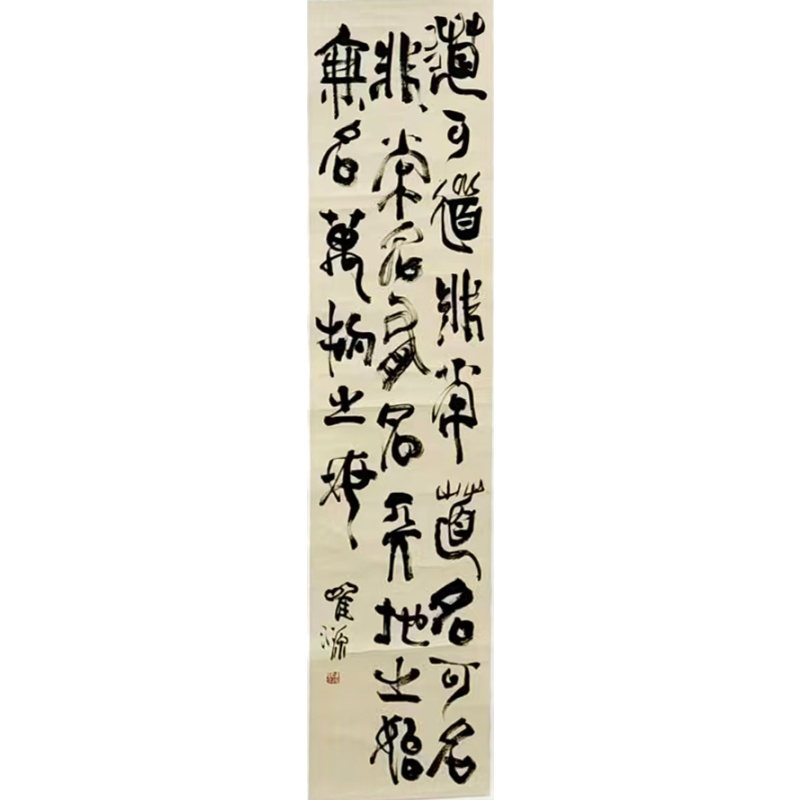 道可道非常道名可名
非常名有名天地之始
無名萬物之母
瞿源